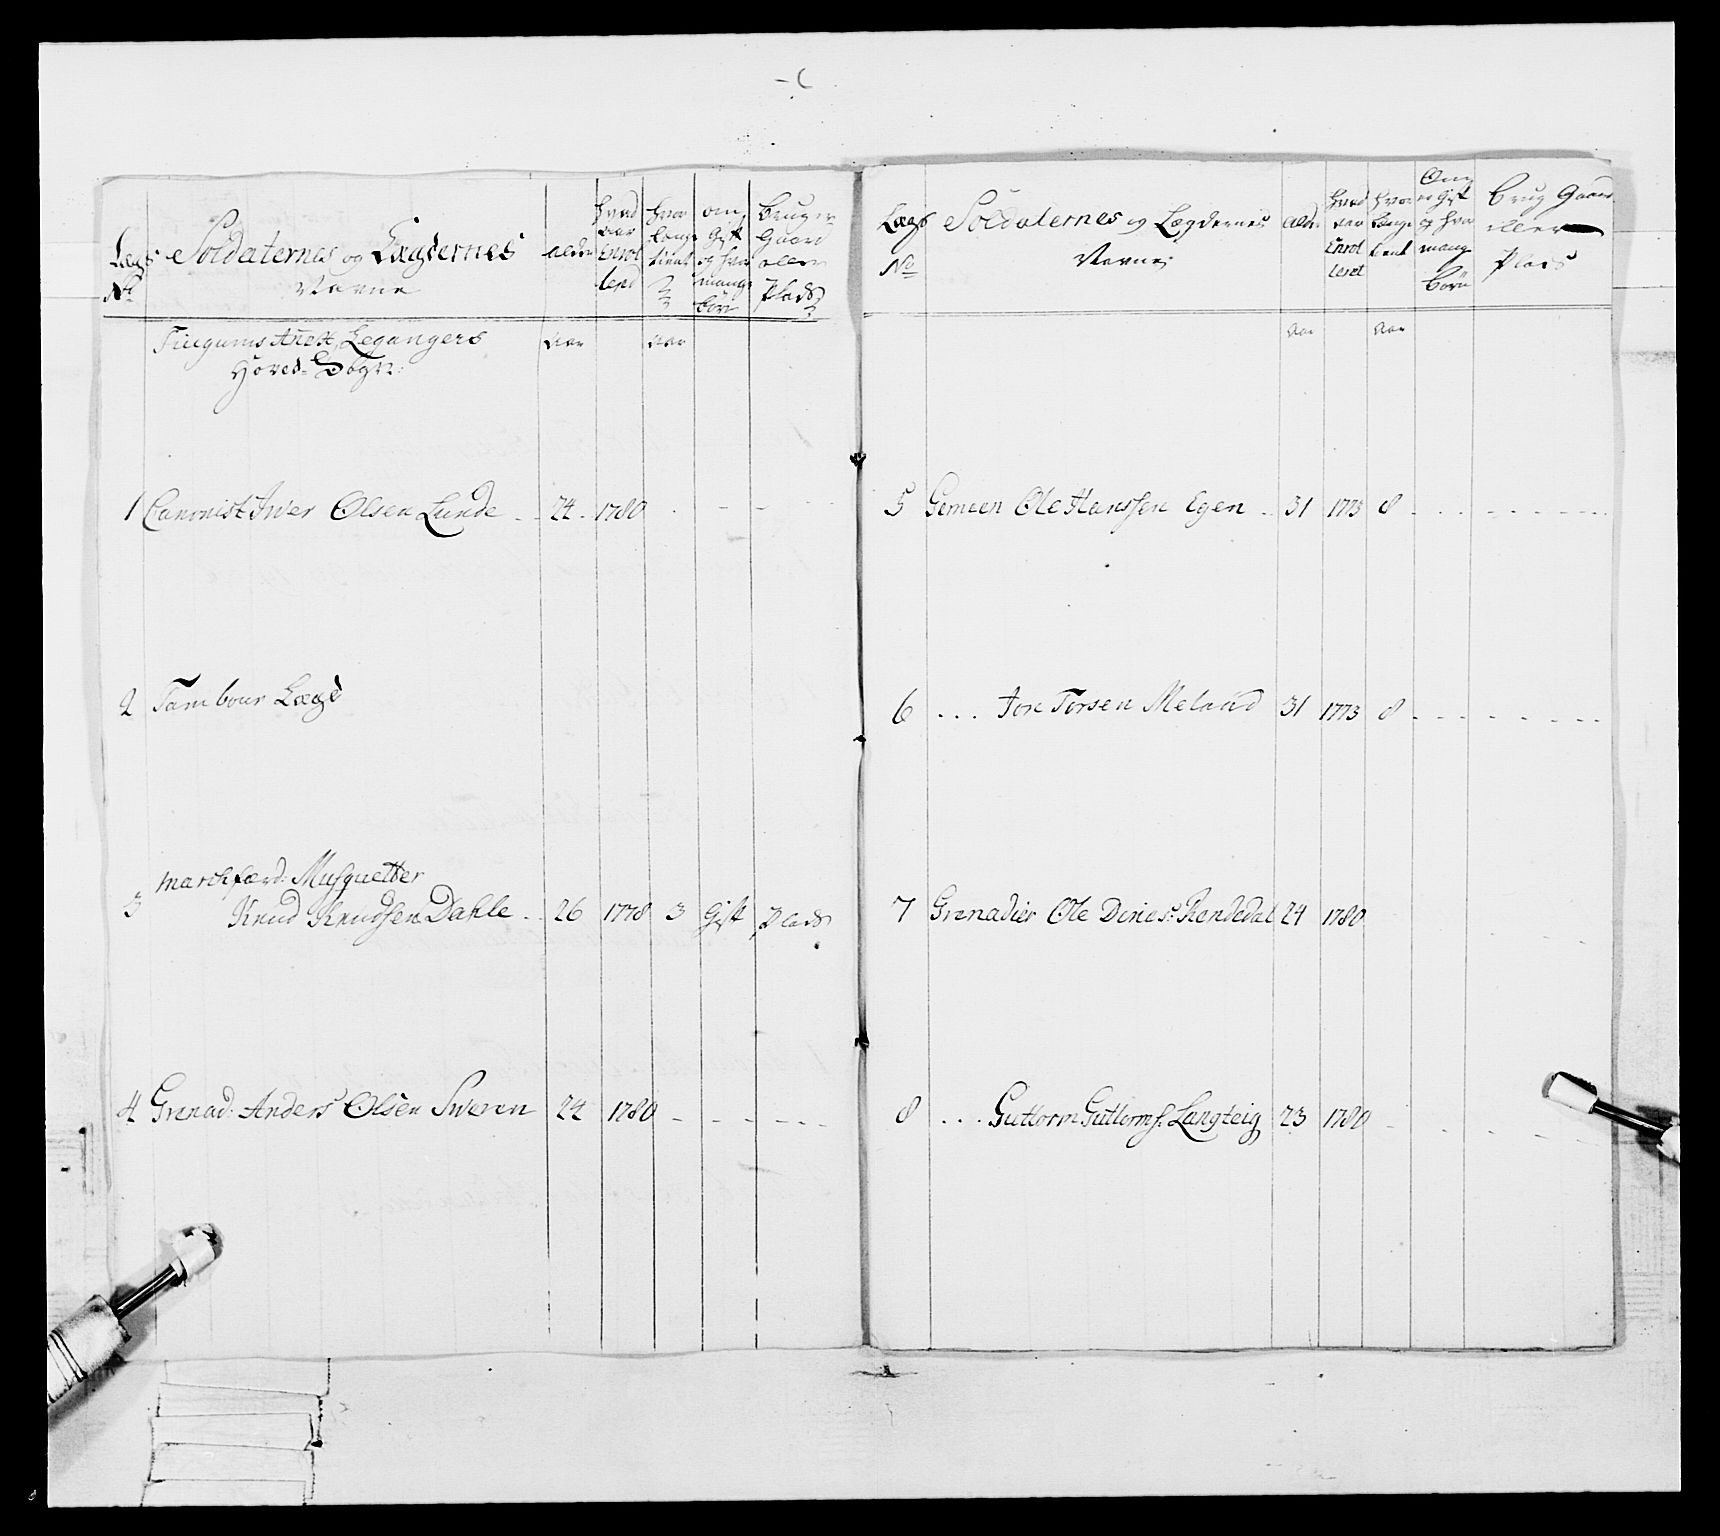 Lægs No
Soldaternes og Lægdernes Navne
alder
hvad aar enrolleret
hvor længe tient
om gift og hvor mange børn
Bruger Gaard eller Plads
Tingums Ott, Leganger's Aar Aar
Hoved-Sogn:
1 Canonist Iver Olsen Lunde - - 24 - 1780 - - -
2 Tambour Lægd
3 marchfærd: Musquetter
Knud Knudsen Dahle - - 26 1778 3 Gift Plads
4 Grenad: Anders Olsen Sweren 24 1780 - - - - - -
Lægs No
Soldaternes og Lægdernes Navne
alder
hvad aar Enrolleret
hvor længe tient
Om er Gift og hvor mange børn
brug Gaard eller Plads
Aar Aar
5 Gemeen Ole Hanssen Egen - 31 1773 8 - - - - - - -
6 ... Tore Torsen Meland 31 1773 8 - - - - - - -
7 Grenadier Ole Dinies: Rendedal 24 1780
8 ... Guttorm Guttorms: Langteig 23 1780 - - - - -